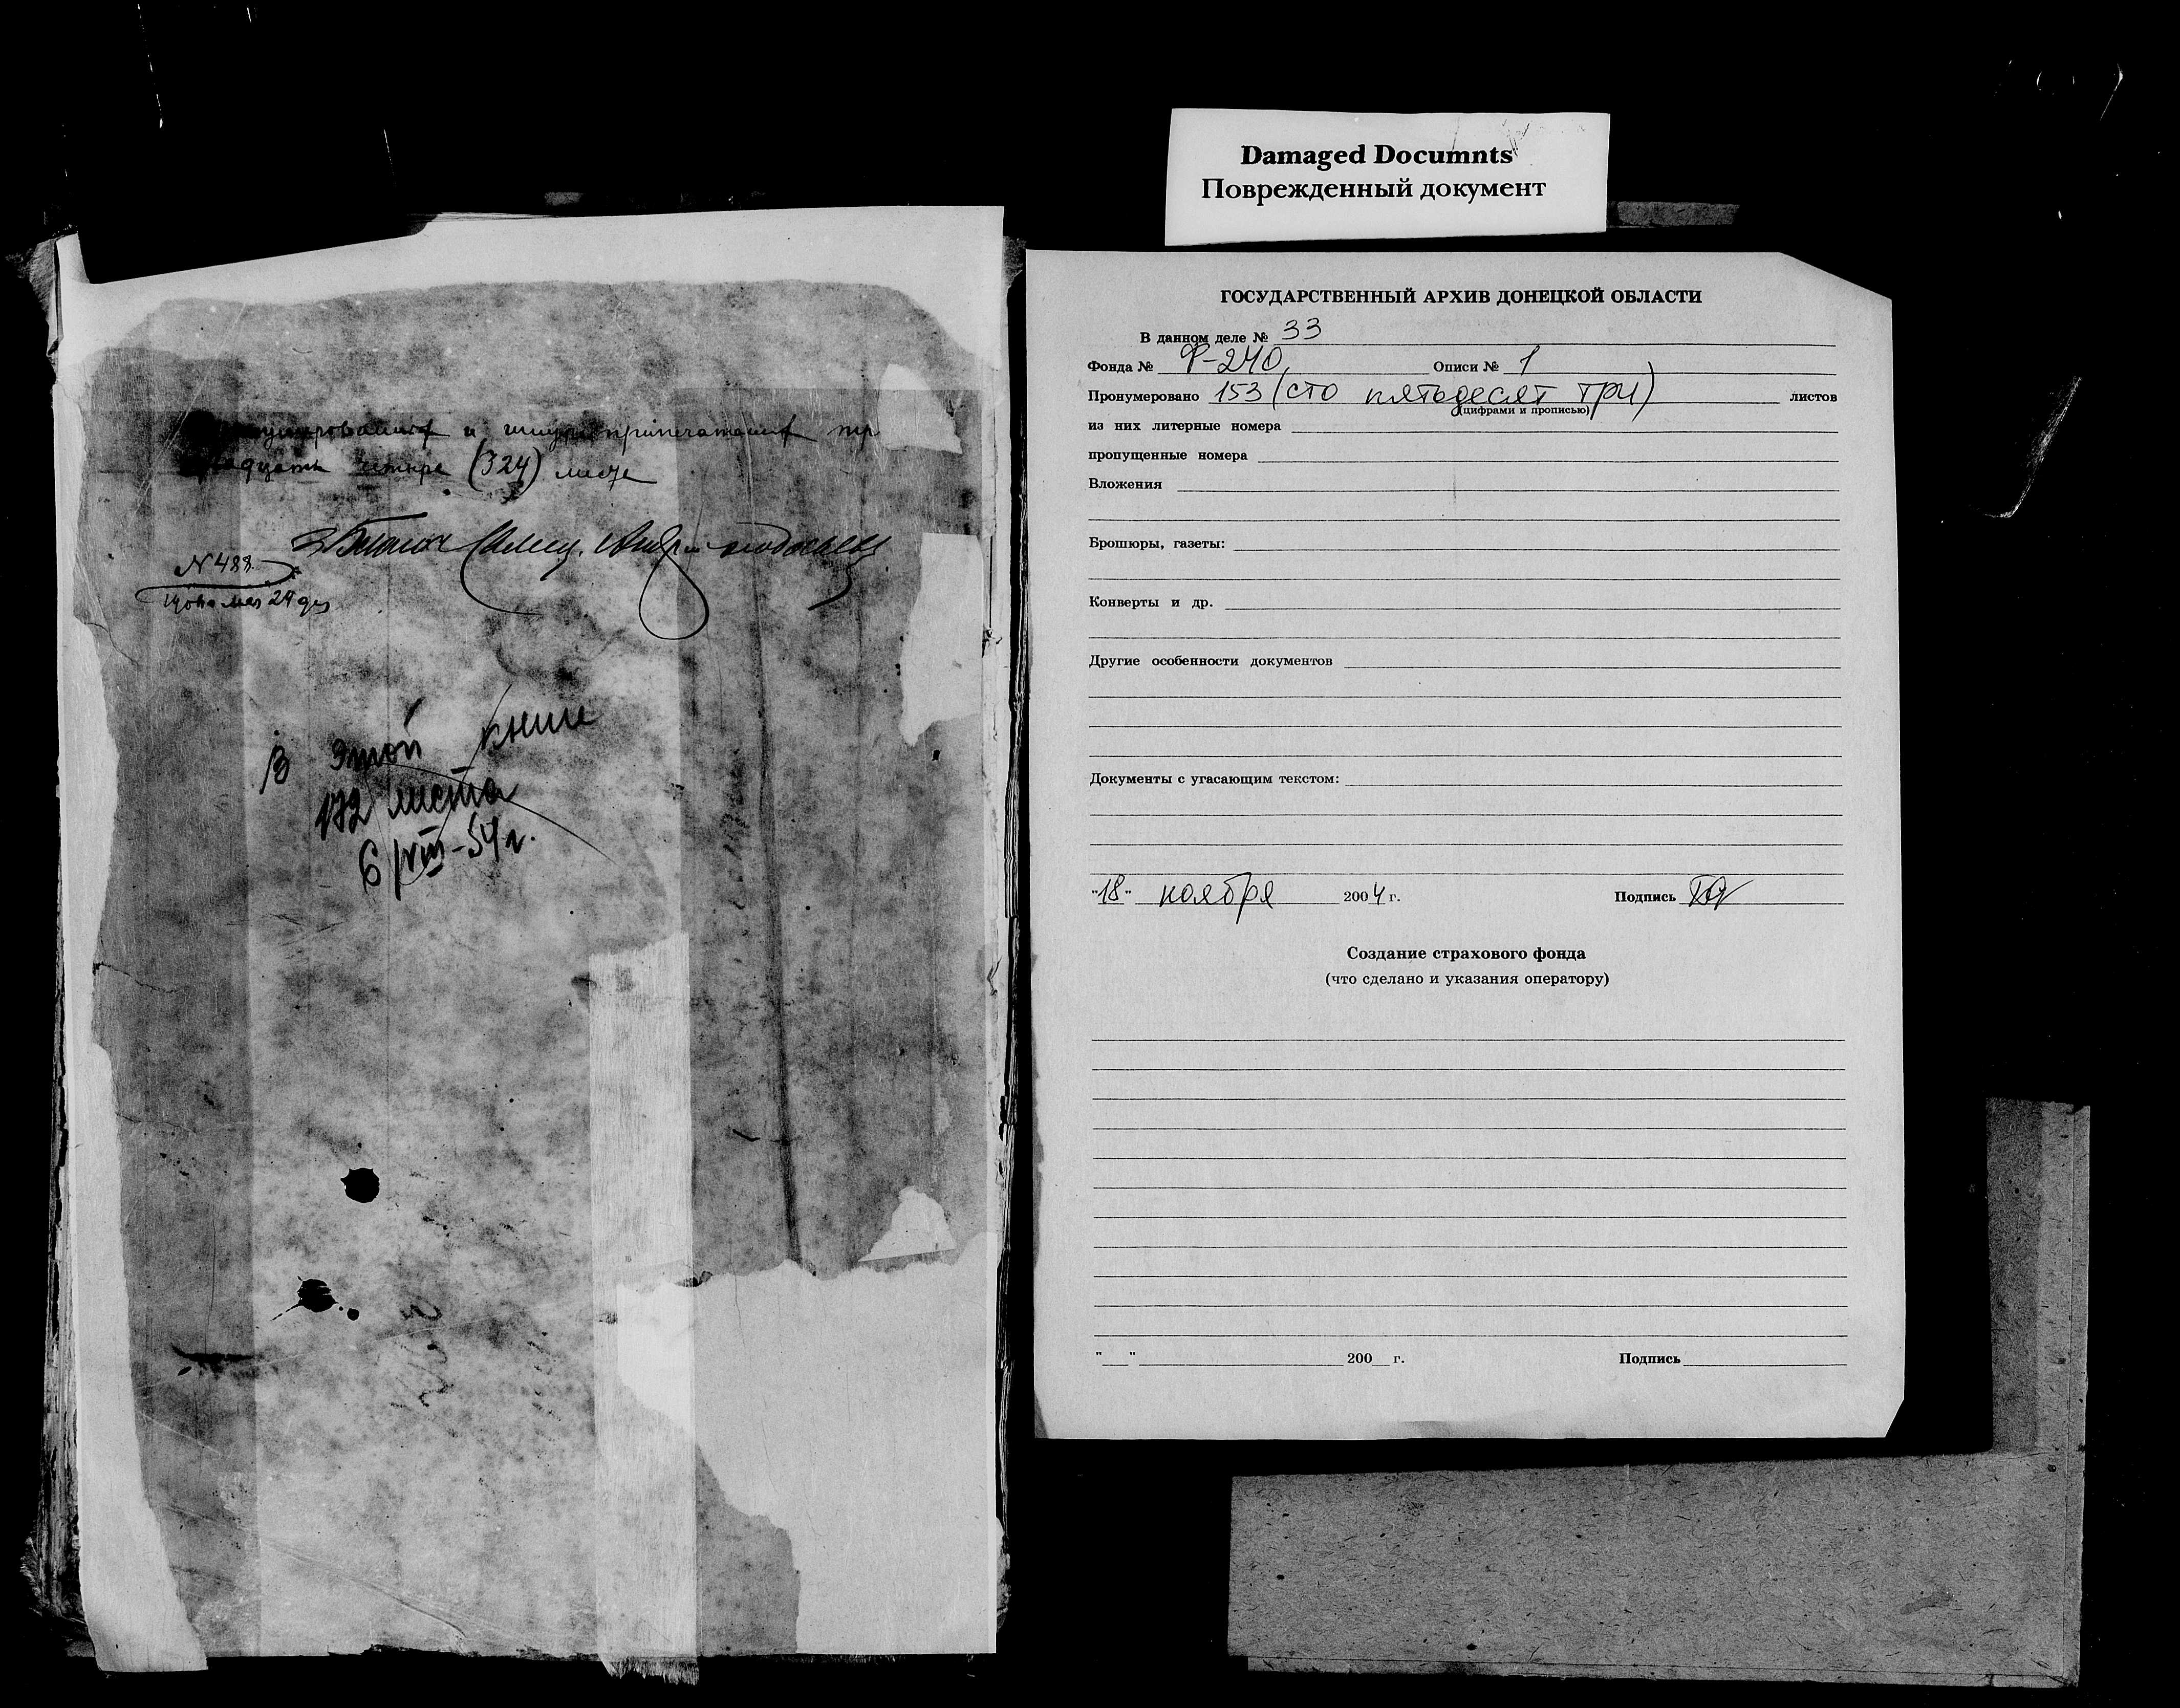 Damaged Documnts
Поврежденный документ
и
четыре (324)
N 488
В этой книге
172 листа
6/VIII-54 г.
ГОСУДАРСТВЕННЫЙ АРХИВ ДОНЕЦКОЙ ОБЛАСТИ
В данном деле № 33
Фонда № Ф-240 Описи № 1
Пронумеровано 153 (сто пятьдесят три) листов
(цифрами и прописью)
из них литерные номера
пропущенные номера
Вложения
Брошюры, газеты:
Конверты и др.
Другие особенности документов
Документы с угасающим текстом:
"18" ноября 2004 г. Подпись
Создание страхового фонда
(что сделано и указания оператору)
"__" 200 г. Подпись